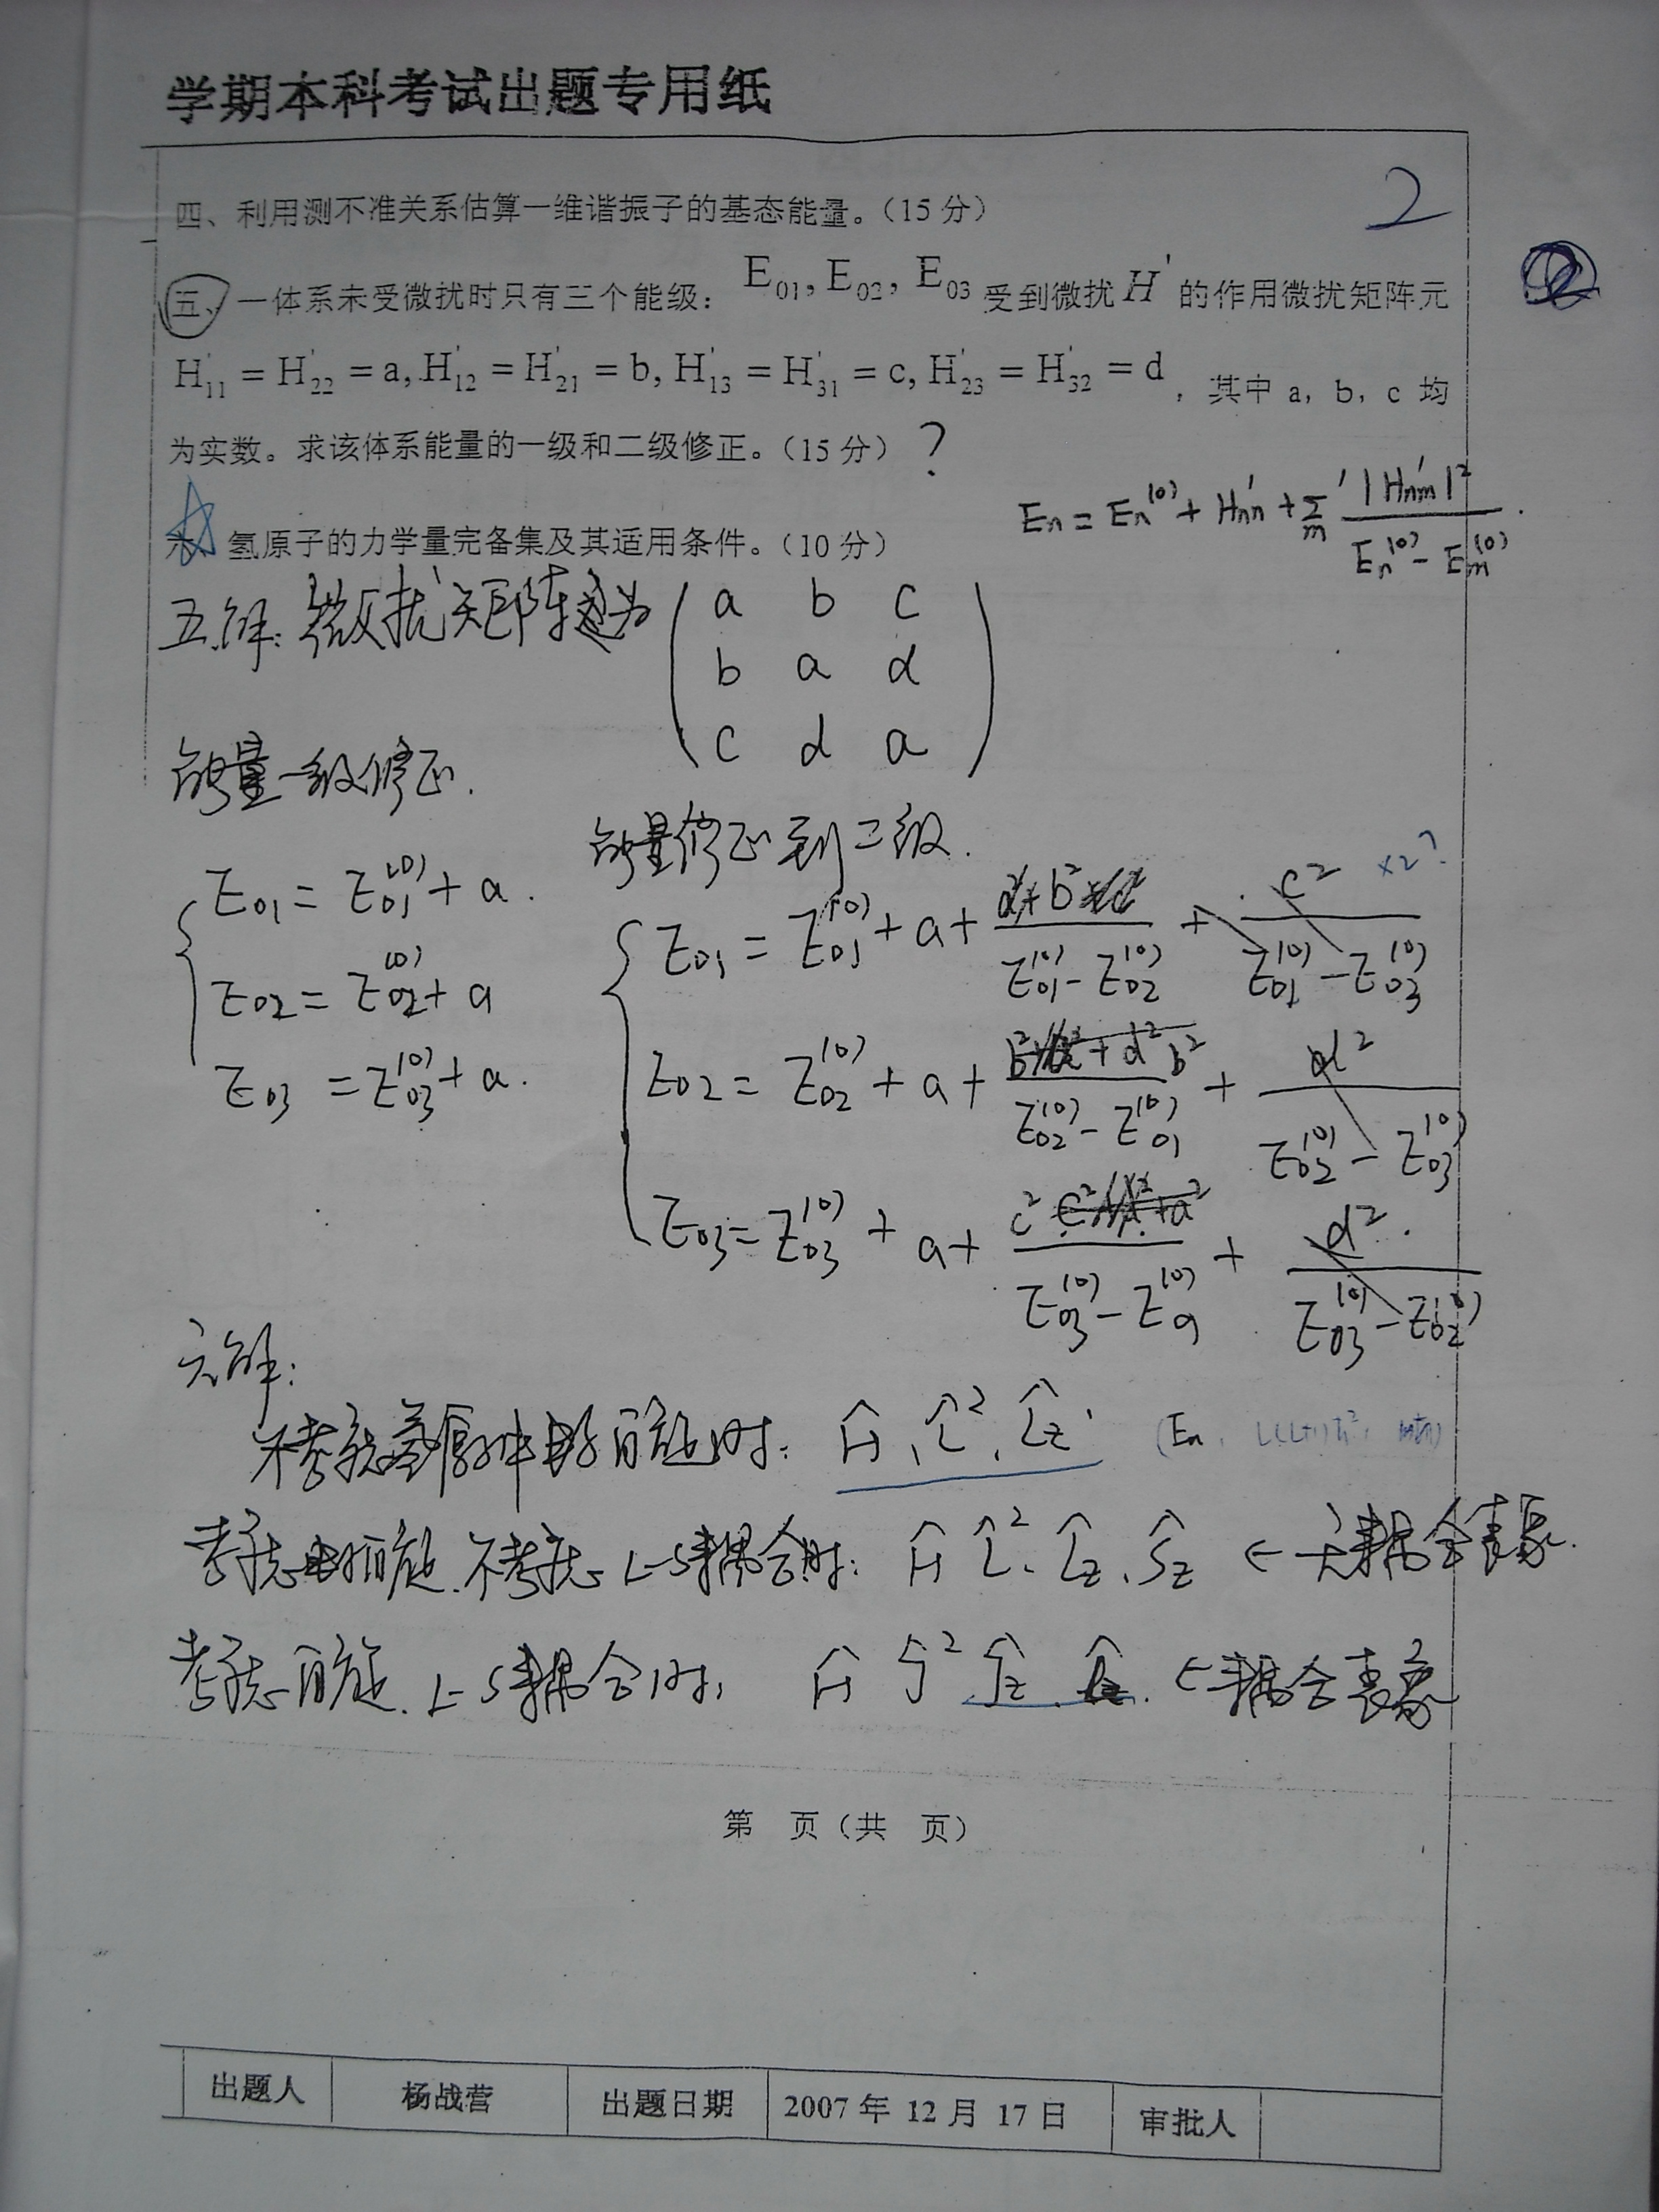 学期本科考试出题专用纸
2
四、利用测不准关系估算一维谐振子的基态能量。（15 分）
五、一体系未受微扰时只有三个能级：E₀₁, E₀₂, E₀₃ 受到微扰 H' 的作用微扰矩阵元
H'₁₁ = H'₂₂ = a, H'₁₂ = H'₂₁ = b, H'₁₃ = H'₃₁ = c, H'₂₃ = H'₃₂ = d ，其中 a，b，c 均
为实数。求该体系能量的一级和二级修正。（15 分）?
En = En⁽⁰⁾ + H'nn + Σ'm |H'nm|² / (En⁽⁰⁾ − Em⁽⁰⁾).
六、氢原子的力学量完备集及其适用条件。（10 分）
五.解: 微扰矩阵为
a b c
b a d
c d a
能量一级修正.
E01 = E01⁽⁰⁾ + a.
E02 = E02⁽⁰⁾ + a
E03 = E03⁽⁰⁾ + a.
能量修正到二级.
E01 = E01⁽⁰⁾ + a + b² / (E01⁽⁰⁾ − E02⁽⁰⁾) + c² / (E01⁽⁰⁾ − E03⁽⁰⁾) ×2?
E02 = E02⁽⁰⁾ + a + b² / (E02⁽⁰⁾ − E01⁽⁰⁾) + d² / (E02⁽⁰⁾ − E03⁽⁰⁾)
E03 = E03⁽⁰⁾ + a + c² / (E03⁽⁰⁾ − E01⁽⁰⁾) + d² / (E03⁽⁰⁾ − E02⁽⁰⁾)
六解:
不考虑氢原子中电子自旋时: Ĥ, L̂², L̂z (En, L(L+1)ħ², mħ)
考虑电子自旋.不考虑L-S耦合时: Ĥ L̂². L̂z. Ŝz ← 无耦合表象.
考虑自旋.L-S耦合时, Ĥ Ĵ² Ĵz ← 耦合表象
第 页（共 页）
出题人 杨战营 出题日期 2007 年 12 月 17 日 审批人